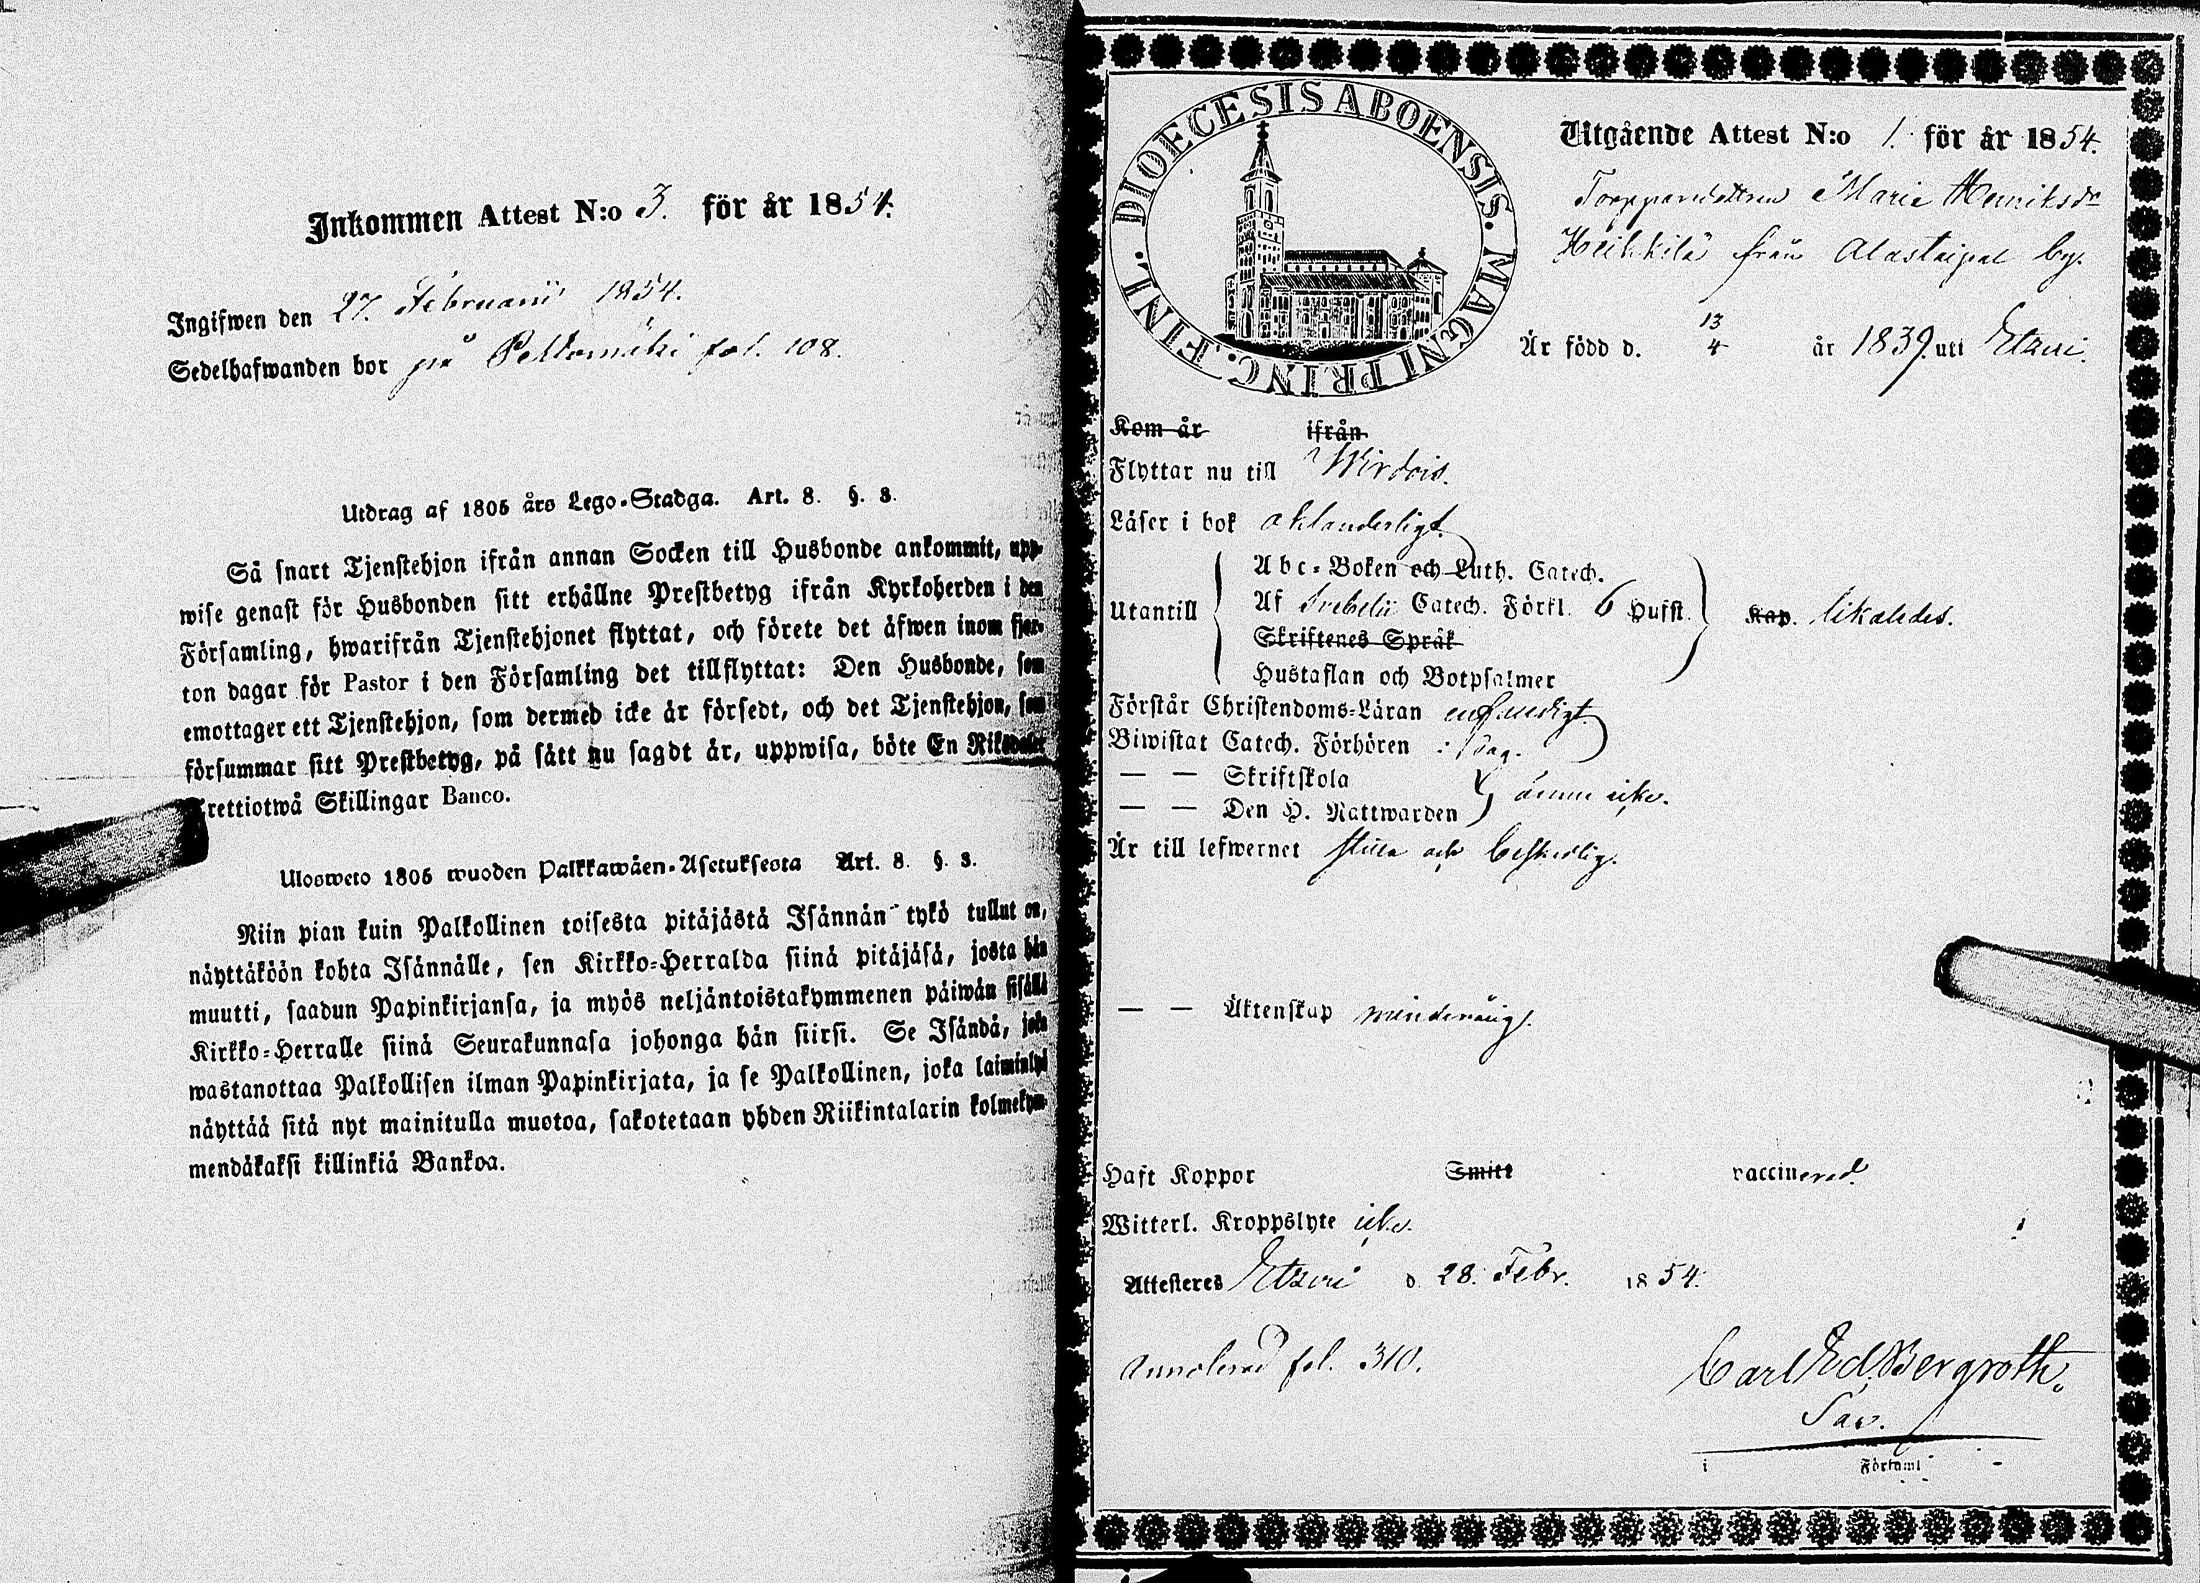 Inkommen Attest N:o 3. för år 1854.
Ingifwen den 27. Februarii 1854.
Sedelhafwanden bor på Peltomäki fol. 108.
Utdrag af 1805 års Lego-Stadga. Art. 8. §. 3.
Så snart Tjenstehjon ifrån annan Socken till Husbonde ankommit, upp-
wise genast för Husbonden sitt erhållne Prestbetyg ifrån Kyrkoherden i den
Församling, hwarifrån Tjenstehjonet flyttat, och förete det äfwen inom fjor-
ton dagar för Pastor i den Församling det tillflyttat: Den Husbonde, som
emottager ett Tjenstehjon, som dermed icke är försedt, och det Tjenstehjon, som
försummar sitt Prestbetyg, på sätt nu sagdt är, uppwisa, böte En Riksdaler
Trettiotwå Skillingar Banco.
Ulosweto 1805 wuoden Palkkawäen-Asetuksesta Art. 8. §. 3.
Niin pian kuin Palkollinen toisesta pitäjästä Isännän tykö tullut on,
näyttäköön kohta Isännälle, sen Kirkko-Herralda siinä pitäjäsä, josta hän
muutti, saadun Papinkirjansa, ja myös neljäntoistakymmenen päiwän sisällä
Kirkko-Herralle siinä Seurakunnasa johonga hän siirsi. Se Isändä, joka
wastanottaa Palkollisen ilman Papinkirjata, ja se Palkollinen, joka laiminlyö
näyttää sitä nyt mainitulla muotoa, sakotetaan yhden Riikintalarin kolmekym-
mendäkaksi killinkiä Bankoa.
DIOECESIS ABOENSIS. MAGNI PRINC. FINL.
Utgående Attest N:o 1. för år 1854.
Torppardottren Maria Henriksdr
Heikkilä från Alastaipal by.
Är född d. 13/4 år 1839. uti Etzeri.
Kom år ifrån
Flyttar nu till Wirdois.
Läser i bok oklanderligt
Utantill
Abc-Boken och Luth. Catech.
Af Svebelii Catech. Förkl. 6 Hufst. Kap. likaledes.
Skriftenes Språk
Hustaflan och Botpsalmer
Förstår Christendoms-Läran enfaldigt.
Biwistat Catech. Förhören
— — Skriftskola
— — Den H. Nattwarden ännu icke.
Är till lefwernet stilla och beskedlig.
— — Äktenskap minderårig.
Haft Koppor Smitt vaccinerad.
Witterl. Kroppslyte icke.
Attesteres Etzeri d. 28. Febr. 1854.
Annoterad fol. 310.
Carl Ed. Bergroth.
Sac.
i Församl